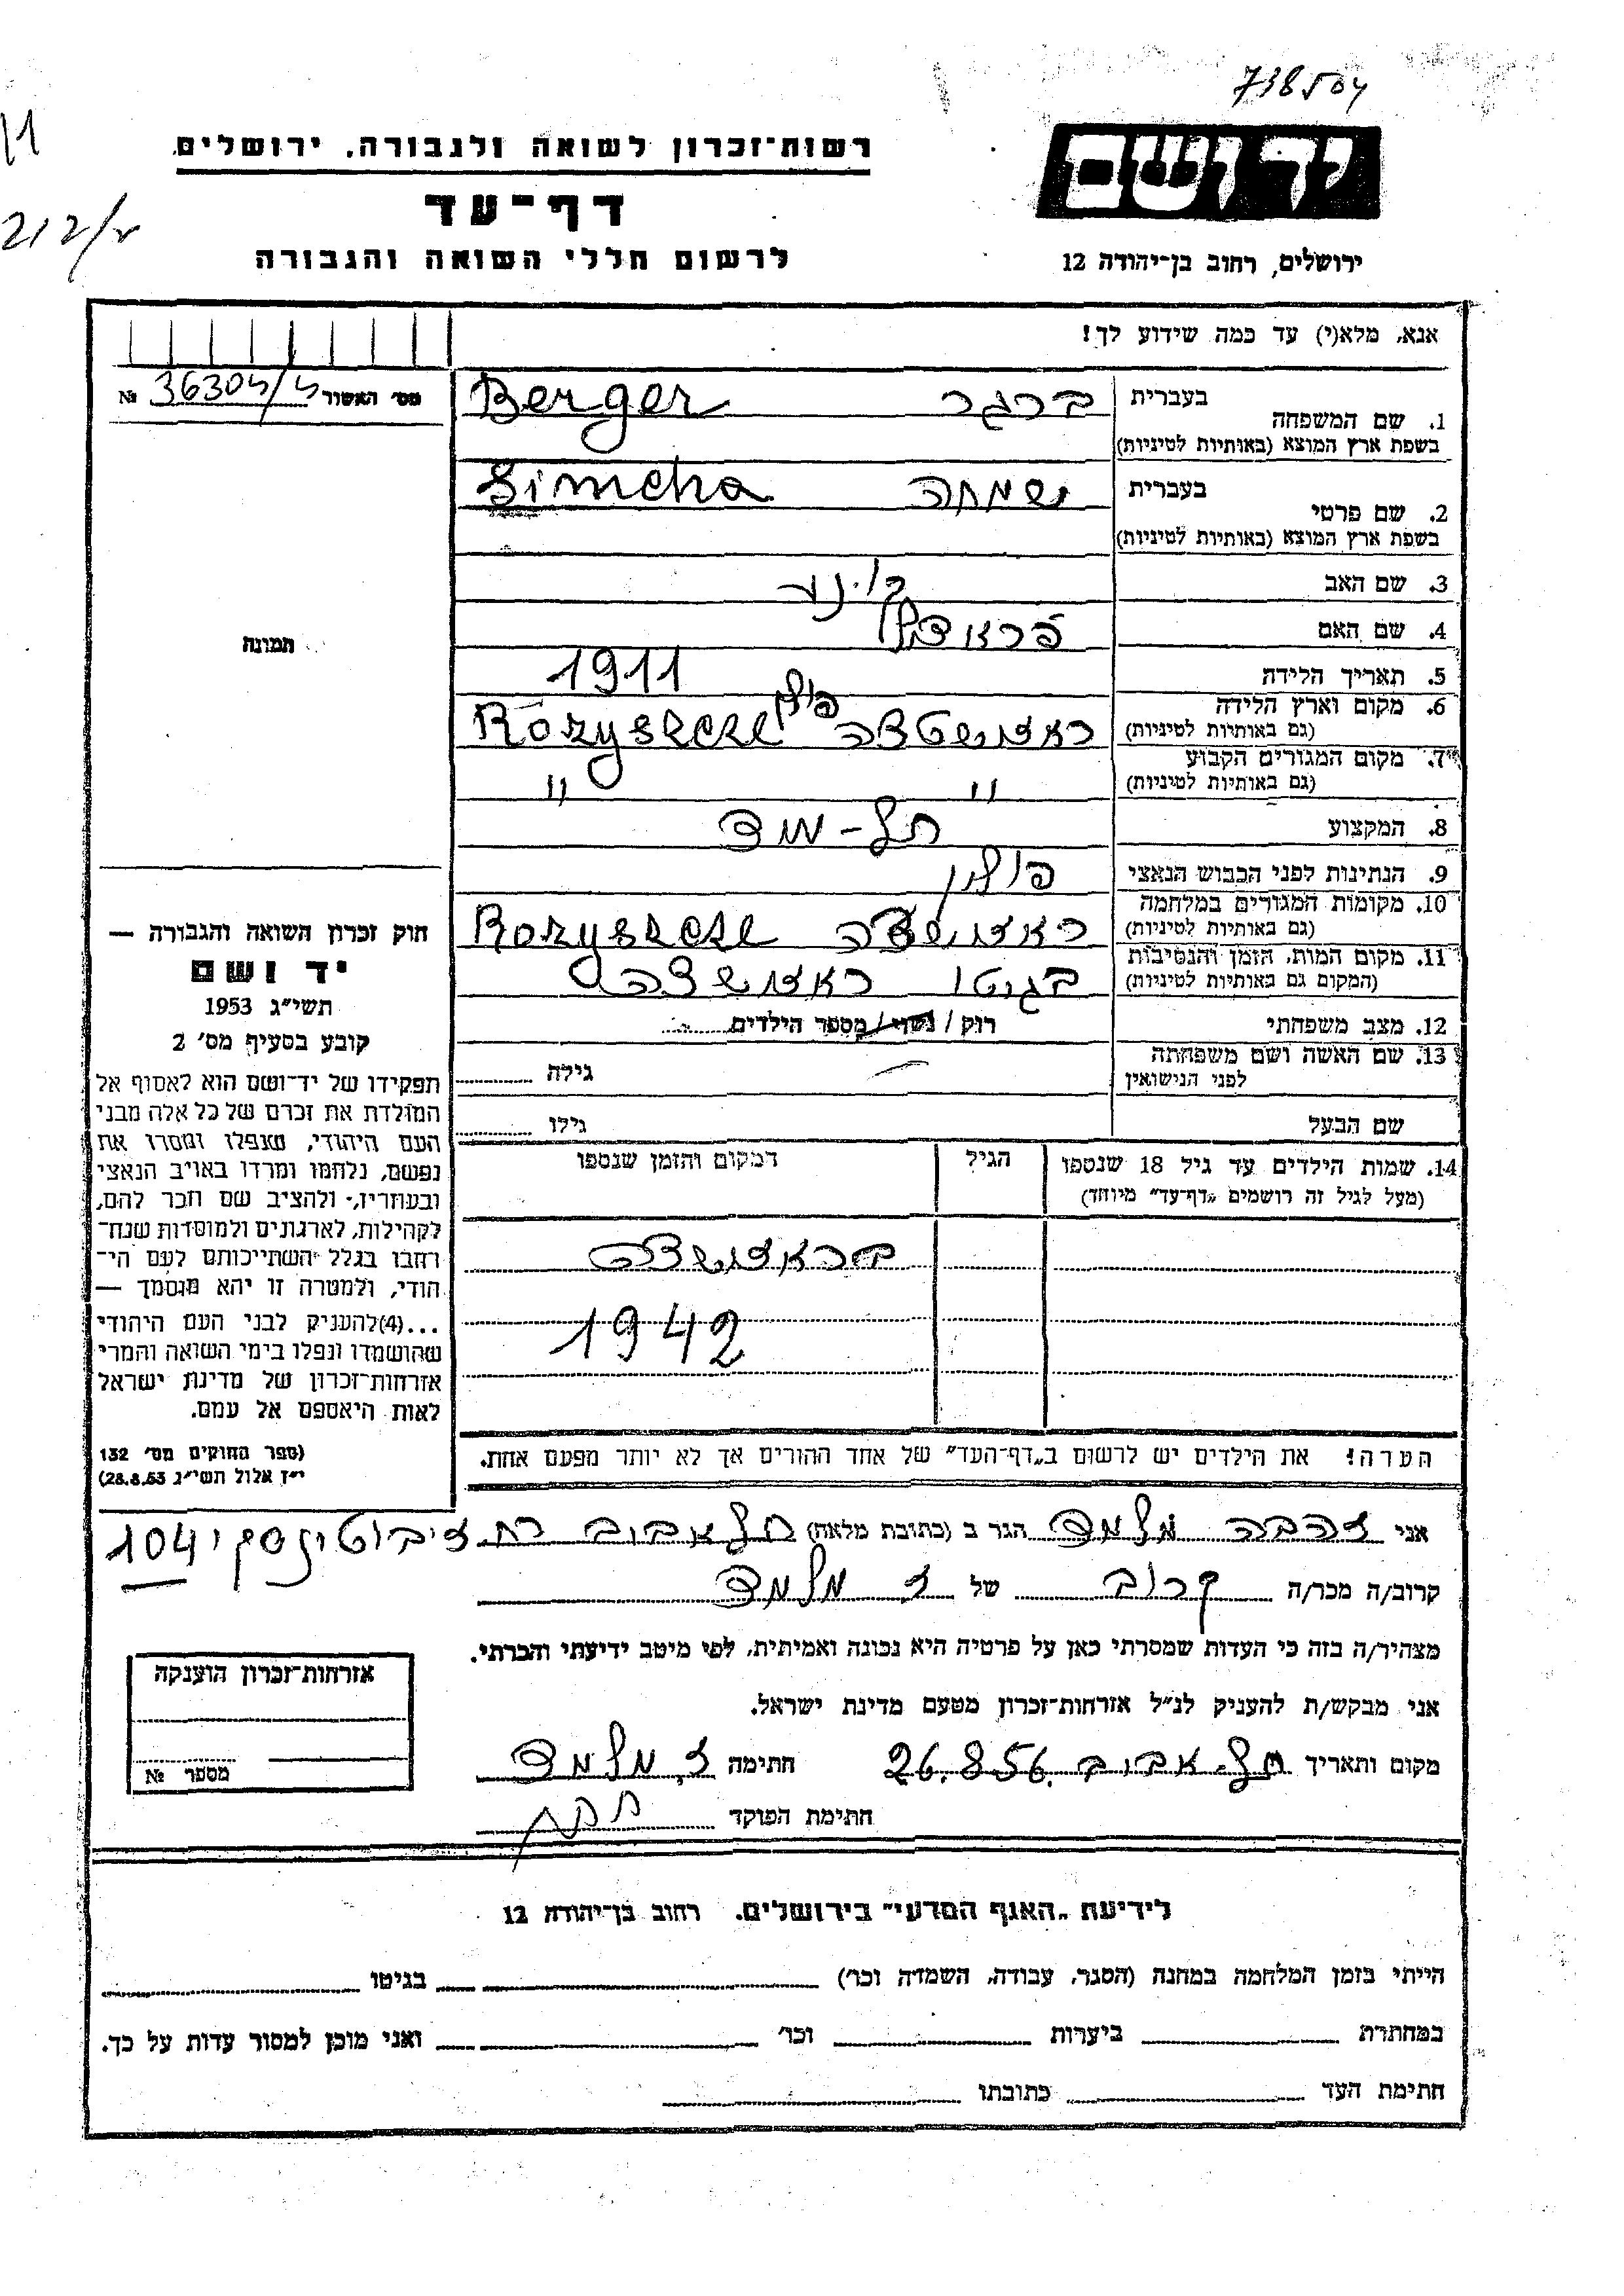 738504
11
רשות־זכרון לשואה ולגבורה. ירושלים.
יד ושם
דף־עד
212/
לרשום חללי השואה והגבורה
ירושלים, רחוב בן־יהודה 12
אנא, מלא(י) עד כמה שידוע לך!
מס׳ האשור № 36304/
1. שם המשפחה
בעברית
ברגר Berger
בשפת ארץ המוצא (באותיות לטיניות)
2. שם פרטי
בעברית
שמחה Simcha
בשפת ארץ המוצא (באותיות לטיניות)
3. שם האב
4. שם האם
תמונה
5. תאריך הלידה 1911
6. מקום וארץ הלידה
(גם באותיות לטיניות)
ראזשישצה פולין Rozyszcze
7. מקום המגורים הקבוע
(גם באותיות לטיניות)
״ ״
8. המקצוע
9. הנתינות לפני הכבוש הנאצי פולין
10. מקומות המגורים במלחמה
(גם באותיות לטיניות)
Rozyszcze
11. מקום המות, הזמן והנסיבות
(המקום גם באותיות לטיניות)
בגיטו
12. מצב משפחתי רוק / נשוי / מספר הילדים
13. שם האשה ושם משפחתה
לפני הנישואין
גילה
שם הבעל גילו
14. שמות הילדים עד גיל 18 שנספו הגיל המקום והזמן שנספו
(מעל לגיל זה רושמים „דף־עד״ מיוחד)
1942
הערה! את הילדים יש לרשום ב„דף־העד״ של אחד ההורים אך לא יותר מפעם אחת.
חוק זכרון השואה והגבורה —
יד ושם
תשי״ג 1953
קובע בסעיף מס׳ 2
תפקידו של יד־ושם הוא לאסוף אל
המולדת את זכרם של כל אלה מבני
העם היהודי, שנפלו ומסרו את
נפשם, נלחמו ומרדו באויב הנאצי
ובעוזריו, ולהציב שם וזכר להם,
לקהילות, לארגונים ולמוסדות שנח־
רבו בגלל השתייכותם לעם הי־
הודי, ולמטרה זו יהא מוסמך —
...(4)להעניק לבני העם היהודי
שהושמדו ונפלו בימי השואה והמרי
אזרחות־זכרון של מדינת ישראל
לאות היאספם אל עמם.
(ספר החוקים מס׳ 132
י״ז אלול תשי״ג 28.8.53)
אני זהבה מלמד הגר ב (כתובת מלאה) תל אביב רח ז׳בוטינסקי 104
קרוב/ה מכר/ה קרוב של ז מלמד
מצהיר/ה בזה כי העדות שמסרתי כאן על פרטיה היא נכונה ואמיתית, לפי מיטב ידיעתי והכרתי.
אני מבקש/ת להעניק לנ״ל אזרחות־זכרון מטעם מדינת ישראל.
מקום ותאריך תל־אביב 26.8.56 חתימה ז. מלמד
חתימת הפוקד
אזרחות־זכרון הוענקה
מספר №
לידיעת „האגף המדעי״ בירושלים. רחוב בן־יהודה 12
הייתי בזמן המלחמה במחנה (הסגר, עבודה, השמדה וכו׳) בגיטו
במחתרת ביערות וכו׳ ואני מוכן למסור עדות על כך.
חתימת העד כתובתו